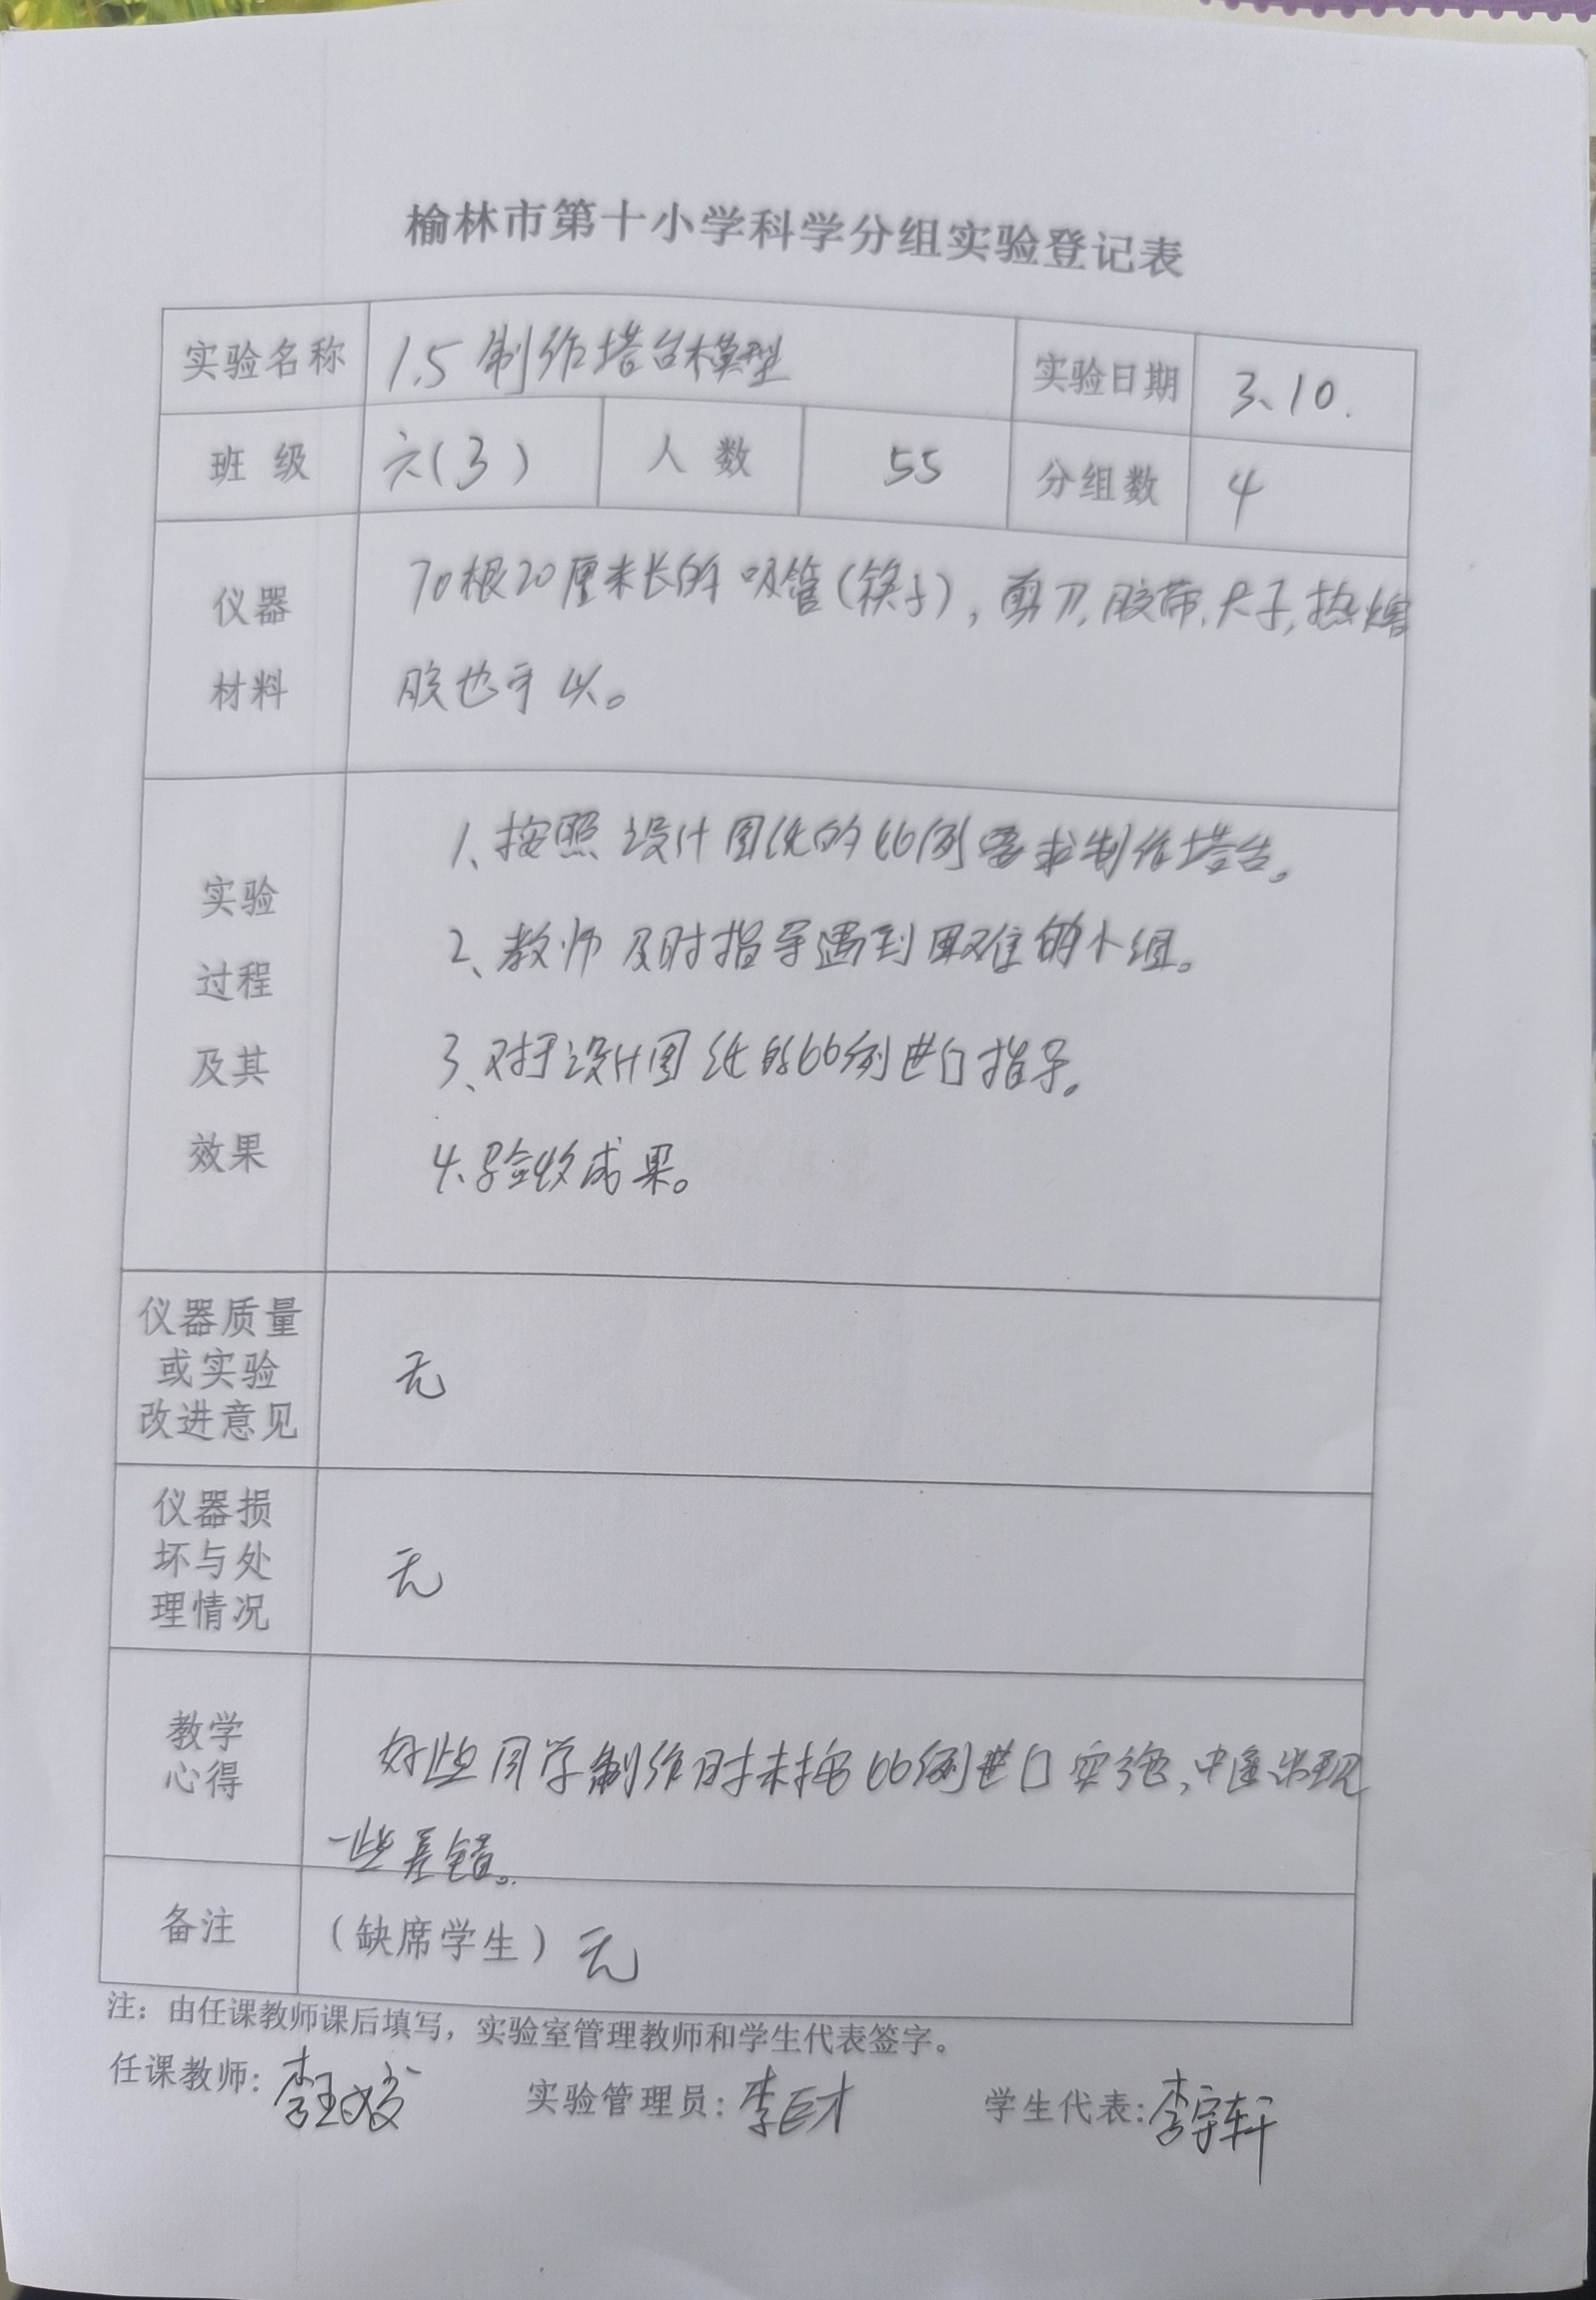 榆林市第十小学科学分组实验登记表
实验名称 1.5 制作塔台模型 实验日期 3、10.
班 级 六(3) 人 数 55 分组数 4
仪器 70根20厘米长的吸管(筷子),剪刀,胶带,尺子,热熔
材料 胶也可以。
1、按照设计图纸的比例要求制作塔台。
实验
2、教师及时指导遇到困难的小组。
过程
3、对于设计图纸的比例进行指导。
及其
效果 4、验收成果。
仪器质量
或实验 无
改进意见
仪器损
坏与处 无
理情况
教学 好些同学制作时未按比例进行实施,中途出现
心得
一些差错。
备注 (缺席学生)无
注:由任课教师课后填写,实验室管理教师和学生代表签字。
任课教师: 李 实验管理员:李巨才 学生代表:李宇轩